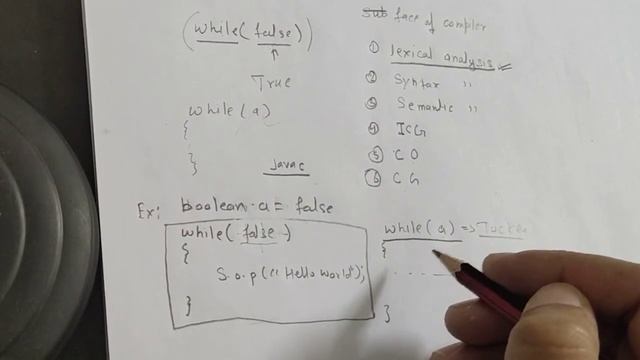 (while(false))
↑
True
while(a)
{
}
javac
Sub face of compler
① lexical analysis
② Syntax "
③ Semantic "
④ ICG
⑤ CO
⑥ CG
Ex: boolean a = false
while(false)
{
S.o.p("Hello World");
}
while(a) =>
{
- - - -
}